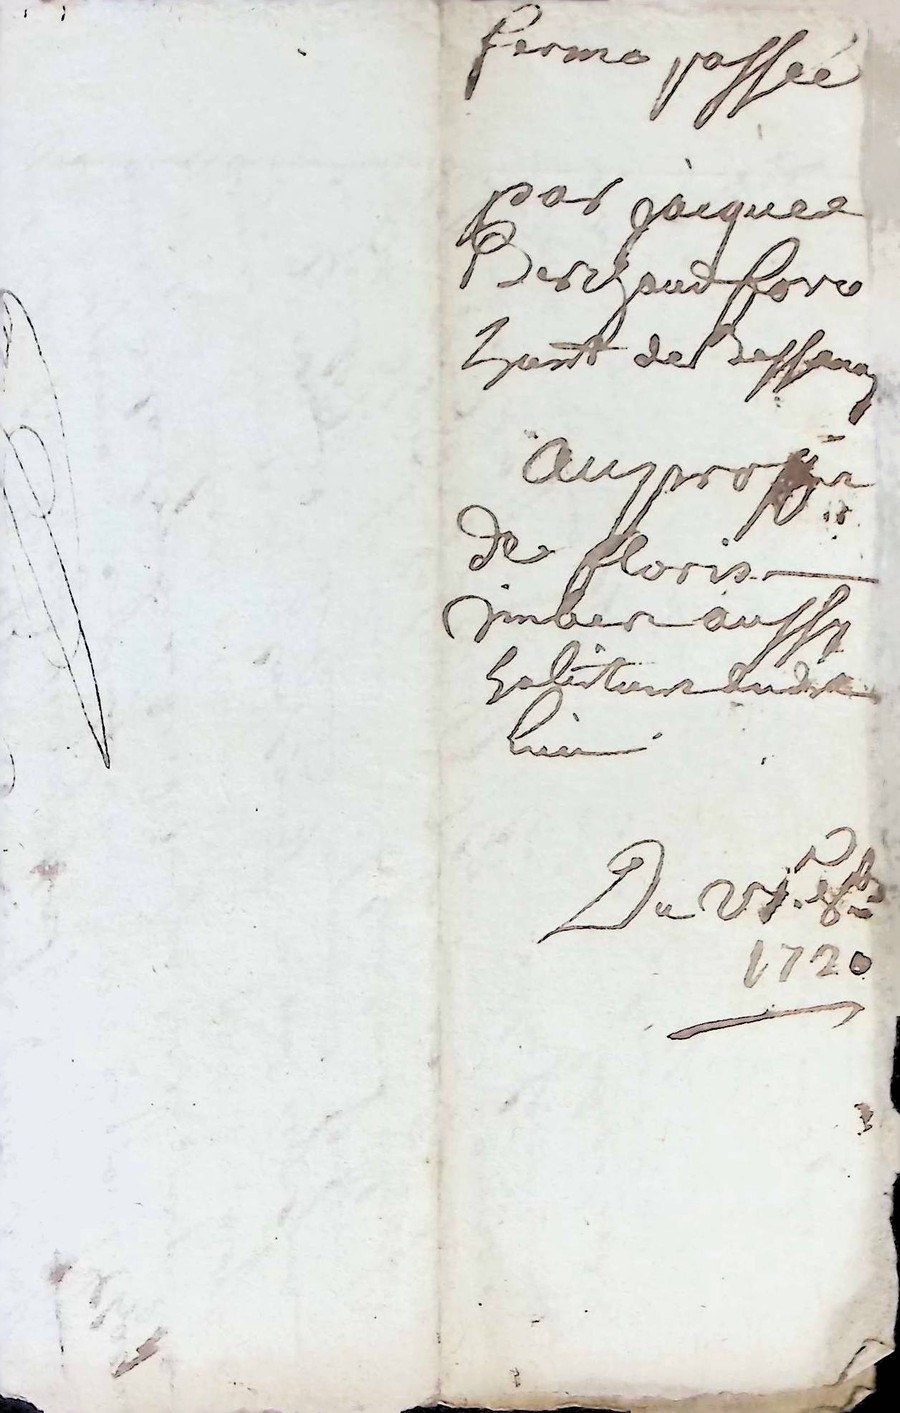 ferme passeé
par jacques
Berthaud
de Bessenay
Au proffit
de floris
jmber aussy
habitans dudit
lieu
Du 8bre
1720